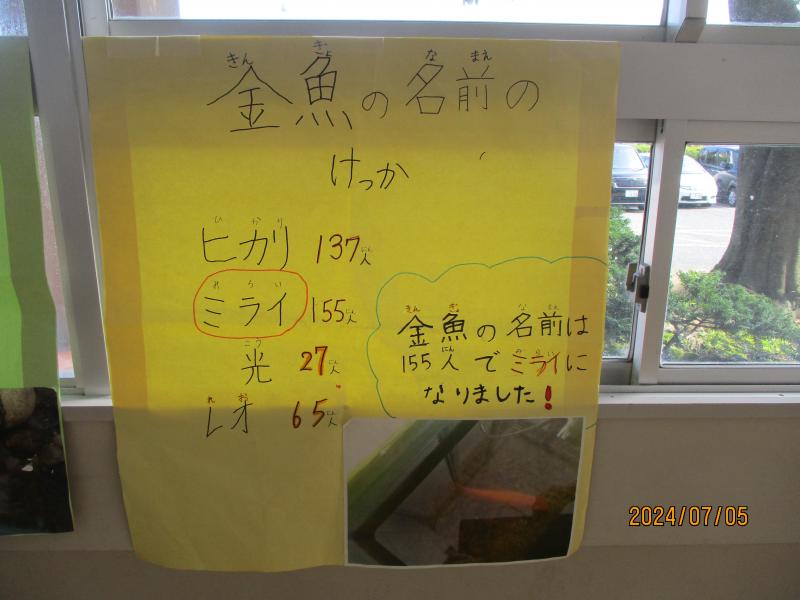 金魚の名前の
けっか
ヒカリ 137人
ミライ 155人
光 27人
レオ 65人
金魚の名前は
155人でミライに
なりました!
2024/07/05